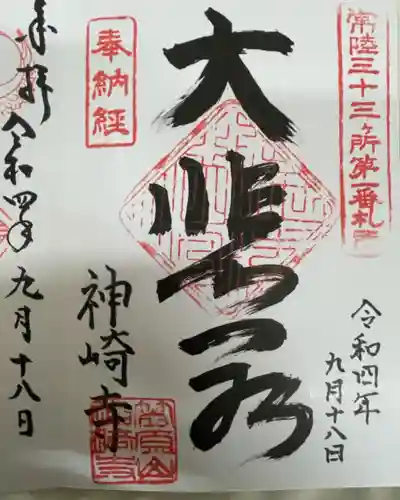 常陸三十三ヶ所第一番札所
令和四年
九月十八日
大悲
奉納経
神崎寺
奉拝
令和四年
九月十八日